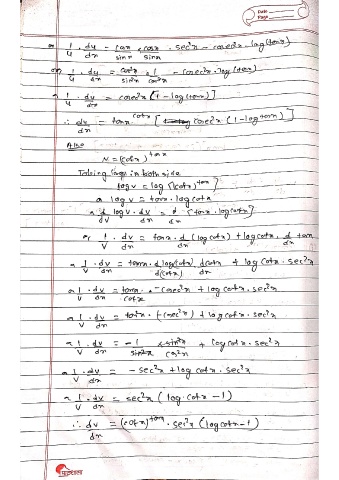 Date
Page
or 1/u . du/dx = cosx/sinx . cosx/sinx . sec²x - cosec²x . log(tanx)
or, 1/u . du/dx = cos²x/sin²x . 1/cos²x - cosec²x . log(tanx)
or 1/u . du/dx = cosec²x (1 - log(tanx)]
∴ du/dx = tanx^cotx [ cosec²x (1 - logtanx)]
Also
V = (cotx)^tanx
Taking log in both side
logv = log [(cotx)^tanx]
or logv = tanx . logcotx
or d/dv logv . dv/dx = d/dx [tanx . logcotx]
or, 1/V . dv/dx = tanx . d/dx (logcotx) + logcotx . d/dx tanx
or 1/V . dv/dx = tanx . dlog(cotx)/d(cotx) . dcotx/dx + logcotx . sec²x
or 1/V . dv/dx = tanx/cotx . -cosec²x + logcotx . sec²x
or 1/V . dv/dx = tan²x . (-cosec²x) + logcotx . sec²x
or 1/V . dv/dx = -1/sin²x × sin²x/cos²x + logcotx . sec²x
or 1/V . dv/dx = -sec²x + logcotx . sec²x
or 1/V . dv/dx = sec²x (log . cotx - 1)
∴ dv/dx = (cotx)^tanx . sec²x (logcotx - 1)